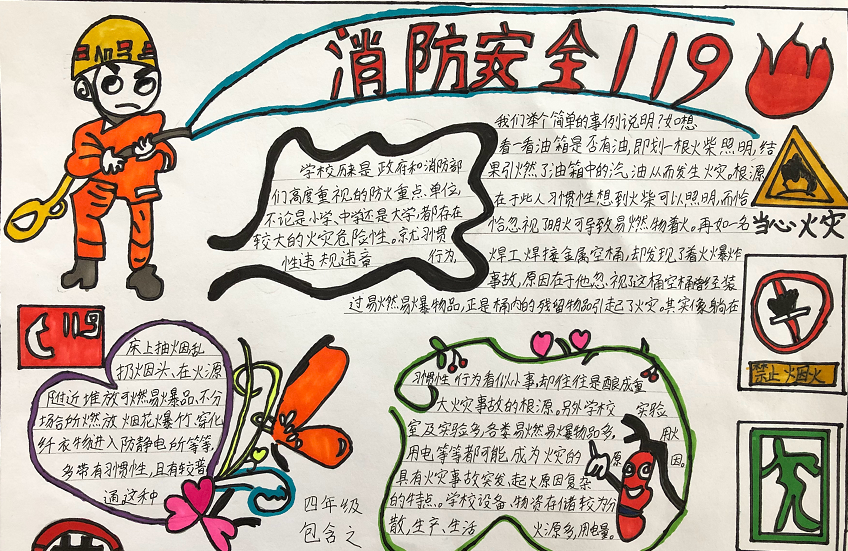 消防安全119
学校历来是政府和消防部
们高度重视的防火重点单位,
不论是小学、中学还是大学,都存在
较大的火灾危险性。就习惯
性违规违章 行为,
我们举个简单的事例说明？如想
看一看油箱是否有油,即划一根火柴照明,结
果引燃了油箱中的汽油从而发生火灾。根源
在于此人习惯性想到火柴可以照明,而恰
恰忽视了明火可导致易燃物着火。再如一名
焊工焊接金属空桶,却发现了着火爆炸
事故,原因在于他忽视了这桶空桶曾经装
过易燃易爆物品,正是桶内的残留物品引起了火灾。其实像躺在
当心火灾
119
床上抽烟乱
扔烟头、在火源
附近堆放可燃易爆品、不分
场所燃放烟花爆竹、穿化
纤衣物进入防静电所等等,
多带有习惯性,且有较普
通这种
习惯性行为看似小事,却往往是酿成重
大火灾事故的根源。另外学校 实验
室及实验多,各类易燃易爆物品多, 用火
用电等等都可能成为火灾的 原因。
具有火灾事故突发、起火原因复杂
的特点。学校设备、物资存储较为分
散,生产、生活 火源多,用电量。
禁止烟火
四年级
包含之